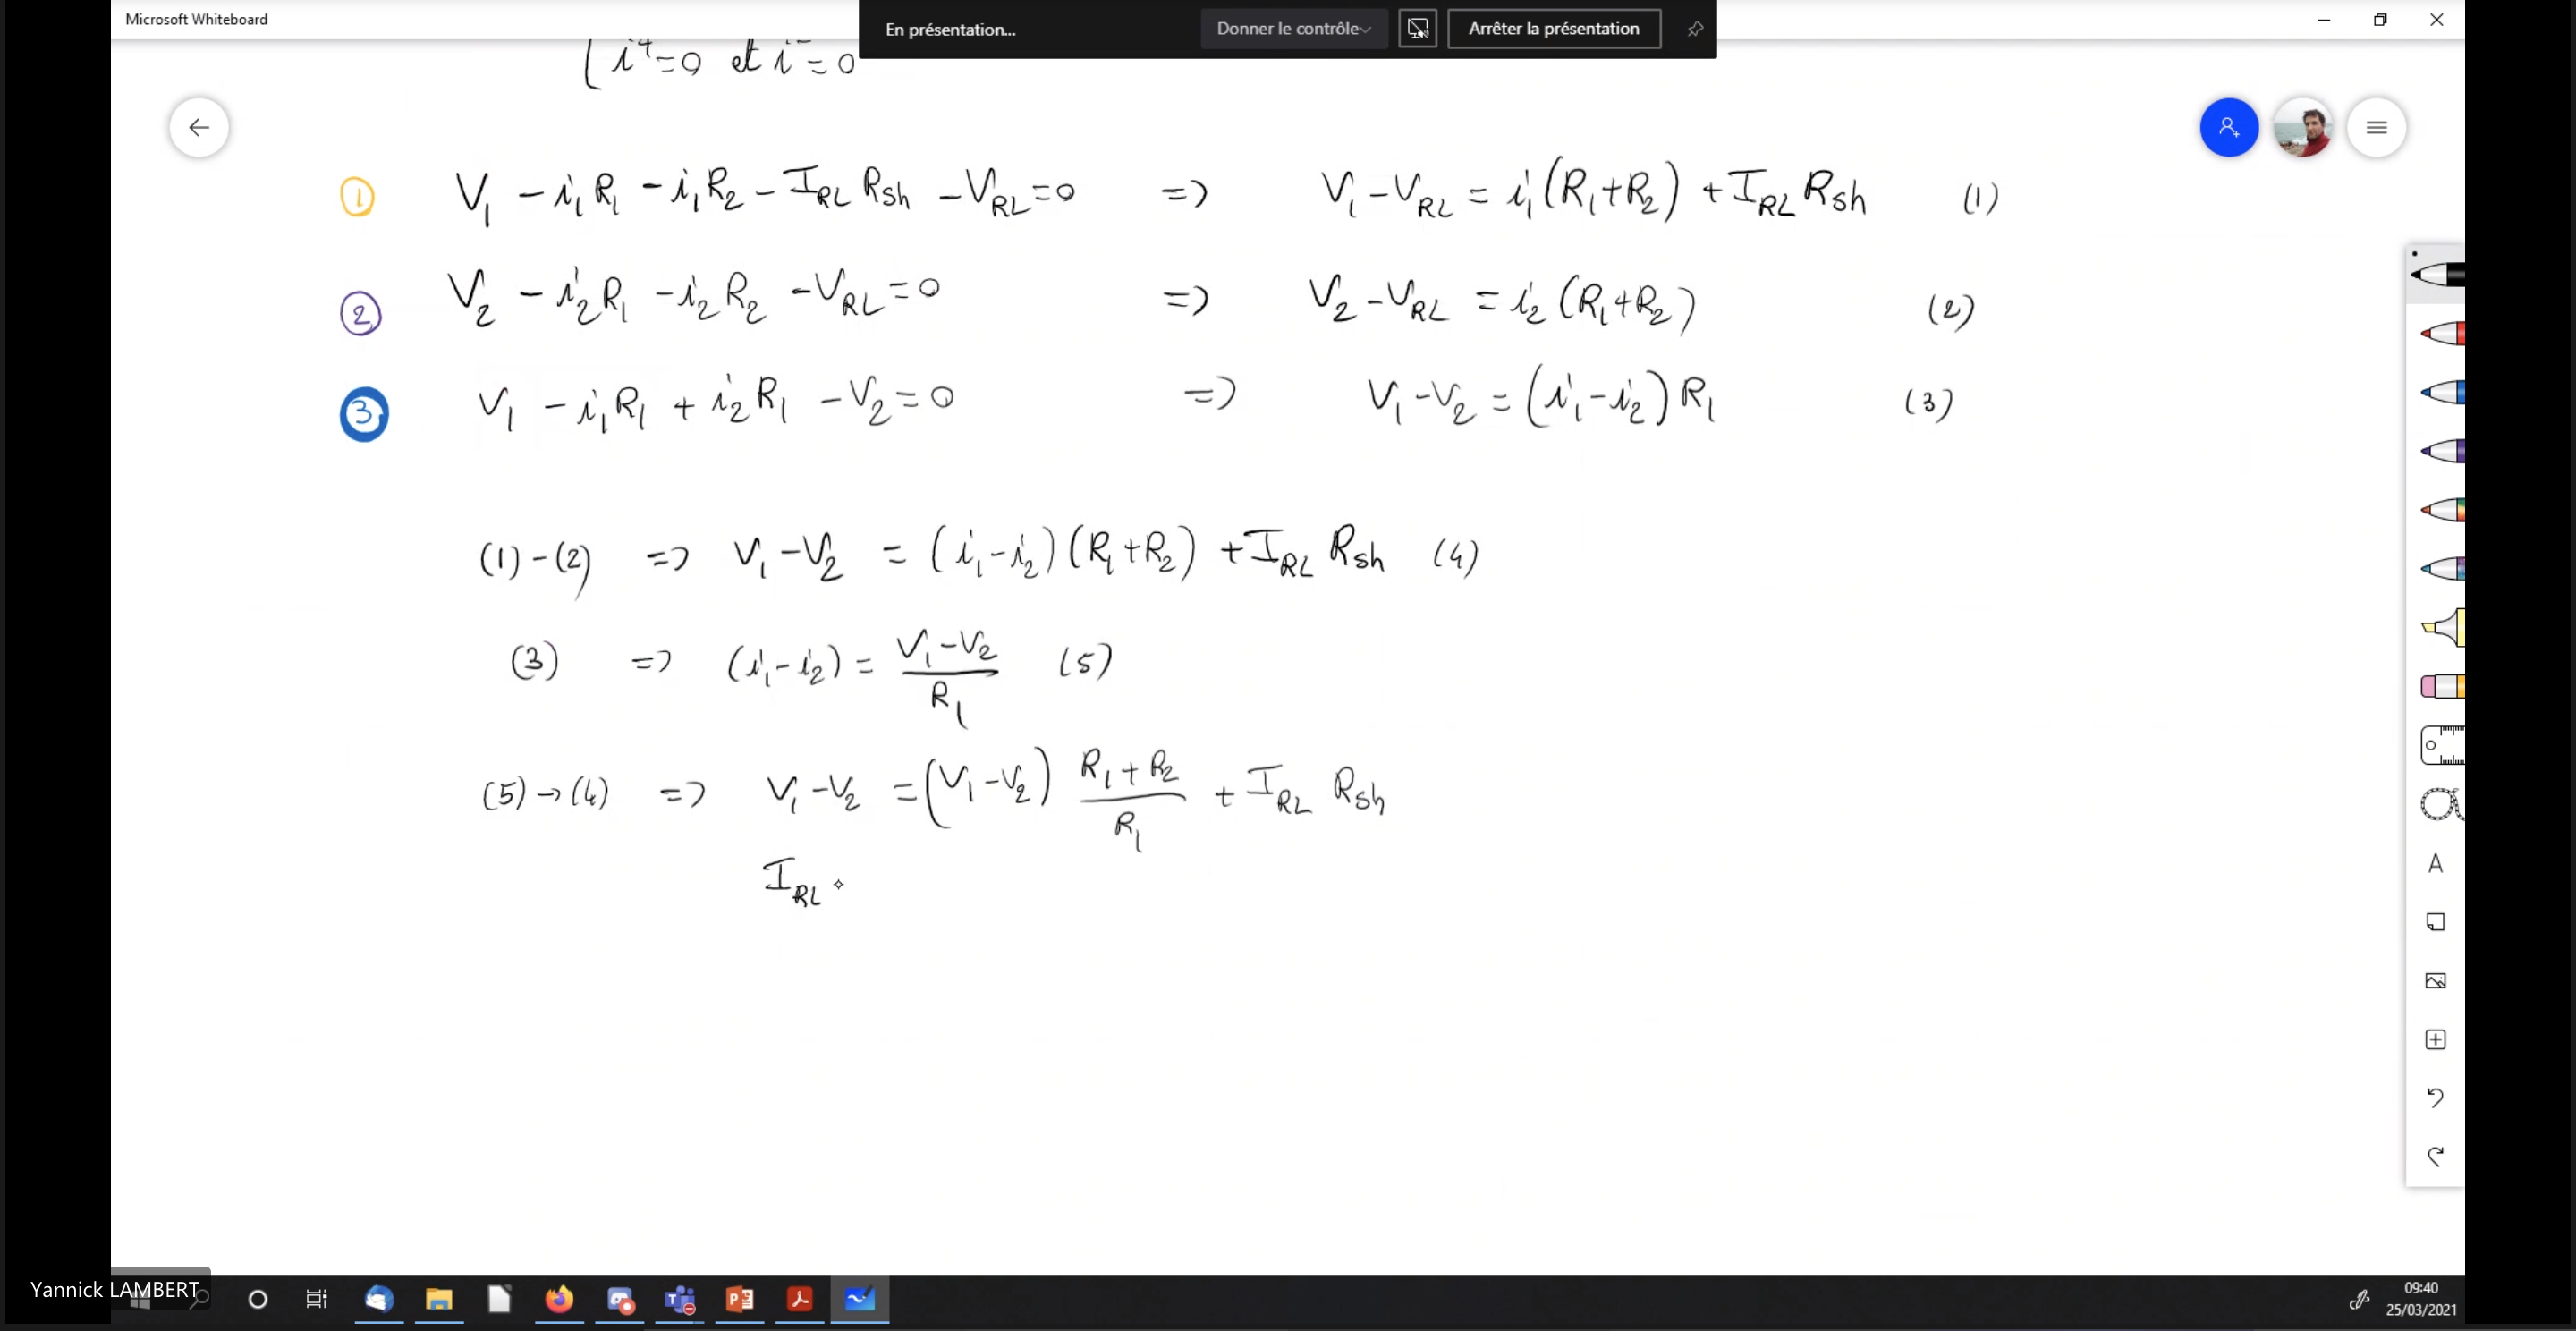 Microsoft Whiteboard
En présentation...
Donner le contrôle
Arrêter la présentation
i⁺=0 et i⁻=0
① V₁ - i₁R₁ - i₁R₂ - I_RL Rsh - V_RL = 0 => V₁ - V_RL = i₁(R₁+R₂) + I_RL Rsh (1)
② V₂ - i₂R₁ - i₂R₂ - V_RL = 0 => V₂ - V_RL = i₂(R₁+R₂) (2)
③ V₁ - i₁R₁ + i₂R₁ - V₂ = 0 => V₁ - V₂ = (i₁ - i₂)R₁ (3)
(1) - (2) => V₁ - V₂ = (i₁ - i₂)(R₁+R₂) + I_RL Rsh (4)
(3) => (i₁ - i₂) = (V₁ - V₂)/R₁ (5)
(5) → (4) => V₁ - V₂ = (V₁ - V₂) (R₁+R₂)/R₁ + I_RL Rsh
I_RL
A
Yannick LAMBERT
09:40
25/03/2021